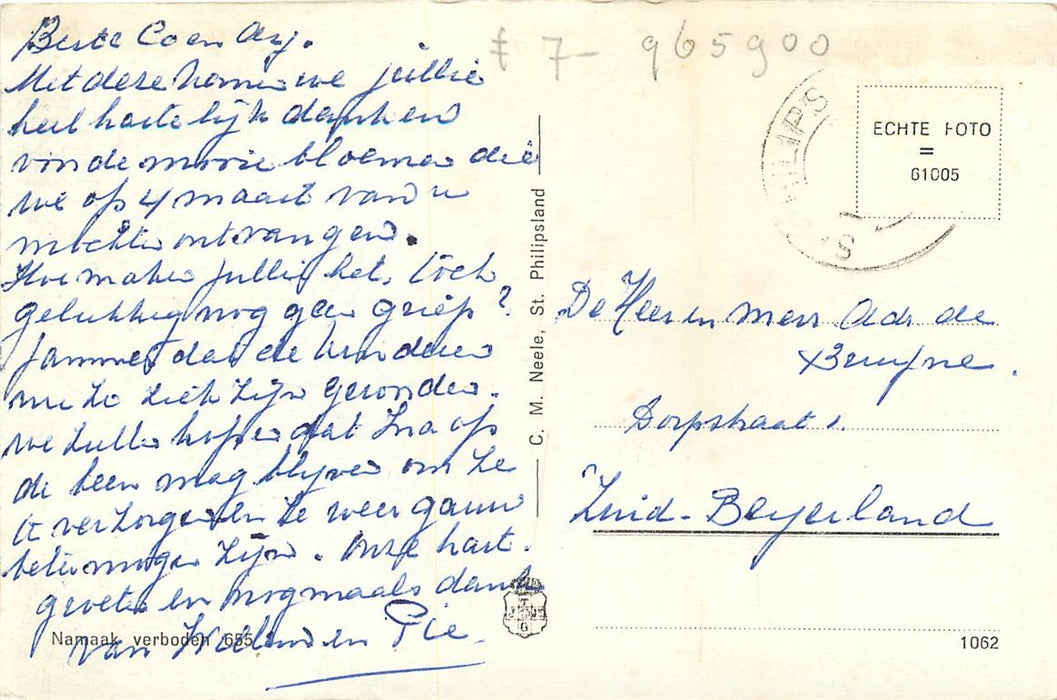 Beste Co en Arj.
Met deze komen we jullie
heel hartelijk danken
voor de mooie bloemen die
we op 4 maart van u
mochten ontvangen.
Hoe maken jullie het, toch
gelukkig nog geen griep?
Jammer dat de kinderen
nu zo ziek zijn geworden.
we zullen hopen dat Ina op
de been mag blijven om ze
te verzorgen en ze weer gauw
beter mogen zijn. Onze hart.
groeten en nogmaals dank
van Willem en Pie.
Namaak verboden 655
C. M. Neele, St. Philipsland
£ 7- 965900
PHILIPS
S
ECHTE FOTO
=
61005
De Heer en Mevr Adr de
Bruyne.
Dorpstraat 1.
Zuid-Beyerland
1062